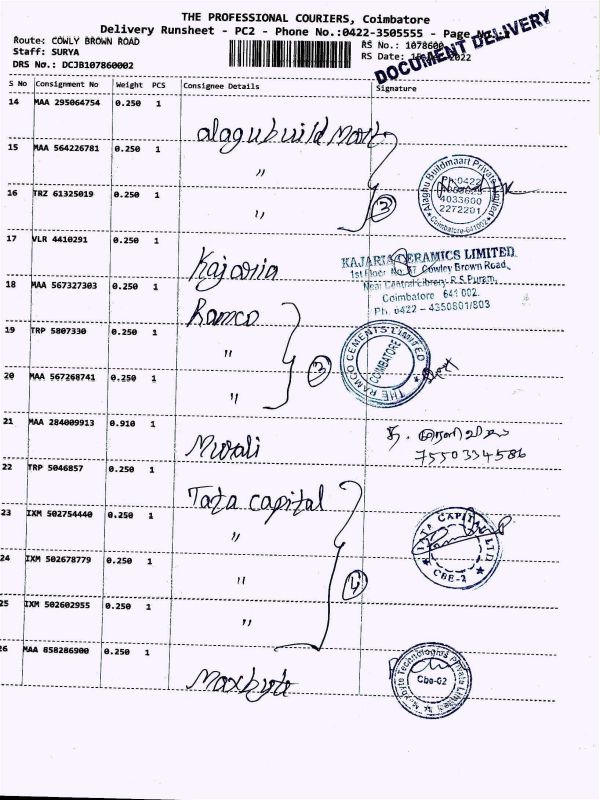 THE PROFESSIONAL COURIERS, Coimbatore
Delivery Runsheet - PC2 - Phone No.:0422-3505555 - Page
DOCUMENT DELIVERY
Route: COWLY BROWN ROAD
RS No.: 1078600
Staff: SURYA
RS Date: 2022
DRS No.: DCJB107860002
S No Consignment No Weight PCS Consignee Details Signature
14 MAA 295064754 0.250 1
alagubuild Mart
15 MAA 564226781 0.250 1
"
16 TRZ 61325019 0.250 1
" 3
Alaghu Buildmaart Private Limited
Ph:0422
4033600
2272201
Coimbatore-641002
17 VLR 4410291 0.250 1
Kajaria
KAJARIA CERAMICS LIMITED
1st Floor No: 57 Cowley Brown Road,
Near Central Library R.S.Puram,
Coimbatore 641 002.
Ph. 0422 - 4350801/803
18 MAA 567327303 0.250 1
Ramco
19 TRP 5807330 0.250 1
" 3
20 MAA 567268741 0.250 1
"
THE RAMCO CEMENTS LIMITED
COIMBATORE
21 MAA 284009913 0.910 1
Murali
7550334586
22 TRP 5046857 0.250 1
Tata capital
23 IXM 502754440 0.250 1
"
24 IXM 502678779 0.250 1
" 4
25 IXM 502602955 0.250 1
"
TATA CAPITAL LTD
CBE-2
26 MAA 858286900 0.250 1
Maxbyte
Maxbyte Technologies Private Limited
Cbe-02